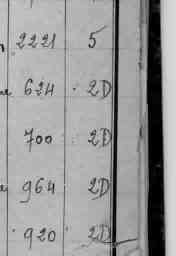 2221 5
624 2D
700 2D
964 2D
920 2D